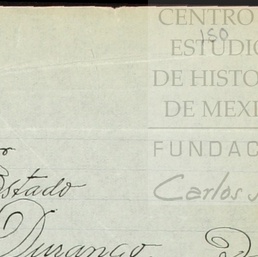 CENTRO
150
ESTUDIO
DE HISTO
DE MEXI
FUNDAC
Carlos
Estado
Durango